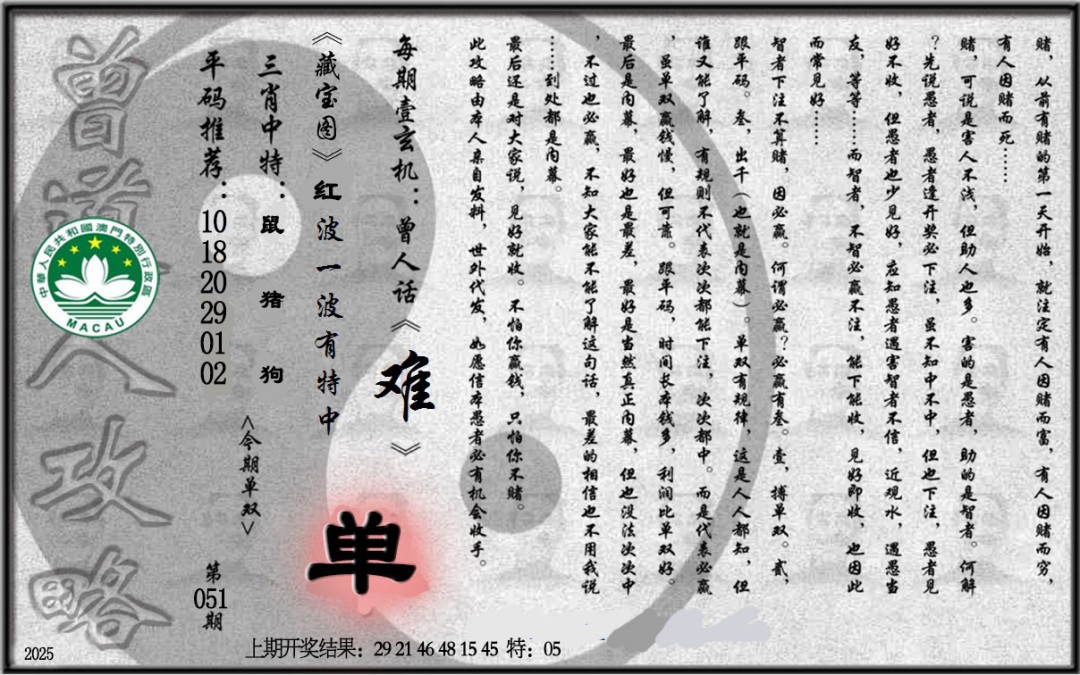 赌，从前有赌的第一天开始，就注定有人因赌而富，有人因赌而穷，
有人因赌而死……
赌，可说是害人不浅，但助人也多。害的是愚者，助的是智者。何解
？先说愚者，愚者逢开奖必下注，虽不知中不中，但也下注，愚者见
好不收，但愚者也少见好，应知愚者遇害智者不信，近观水，遇愚当
友，等等……而智者，不智必赢不注，能下能收，见好即收，也因此
而常见好……
智者下注不算赌，因必赢。何谓必赢？必赢有叁。壹，搏单双。贰，
跟平码。叁，出千（也就是内幕）。单双有规律，这是人人都知，但
谁又能了解，有规则不代表次次都能下注，次次都中。而是代表必赢
，虽单双赢钱慢，但可靠。跟平码，时间长本钱多，利润比单双好。
最后是内幕，最好也是最差，最好是当然真正内幕，但也没法次次中
，不过也必赢，不知大家能不能了解这句话，最差的相信也不用我说
……到处都是内幕。
最后还是对大家说，见好就收。不怕你赢钱，只怕你不赌。
此攻略由本人亲自发料，世外代发，如愿信本愚者必有机会收手。
每期壹玄机：曾人话《难》
《藏宝图》红波一波有特中
三肖中特：鼠 猪 狗
平码推荐：10 18 20 29 01 02
<今期单双>
单
第051期
曾道人攻略
中華人民共和國澳門特別行政區
MACAU
2025
上期开奖结果：29 21 46 48 15 45 特：05